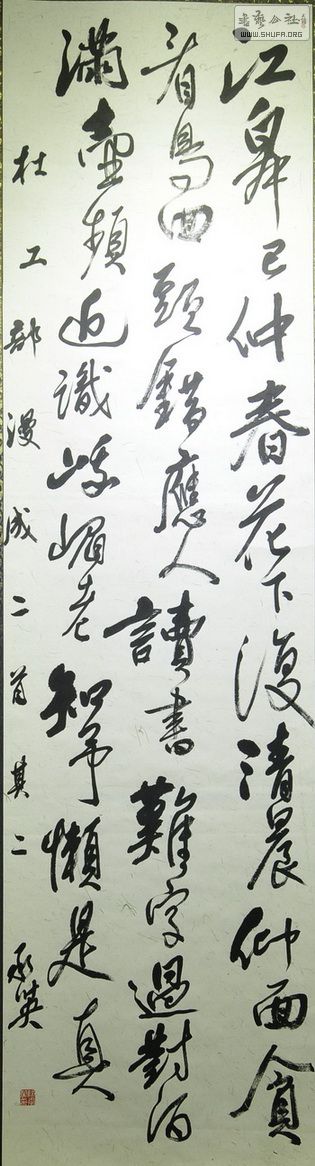 江皋已仲春花下復清晨仰面貪
看鳥回頭錯應人讀書難字過對酒
滿壺頻近識峨嵋老知予懶是真
杜工部漫成二首其二 承英
书艺公社
WWW.SHUFA.ORG